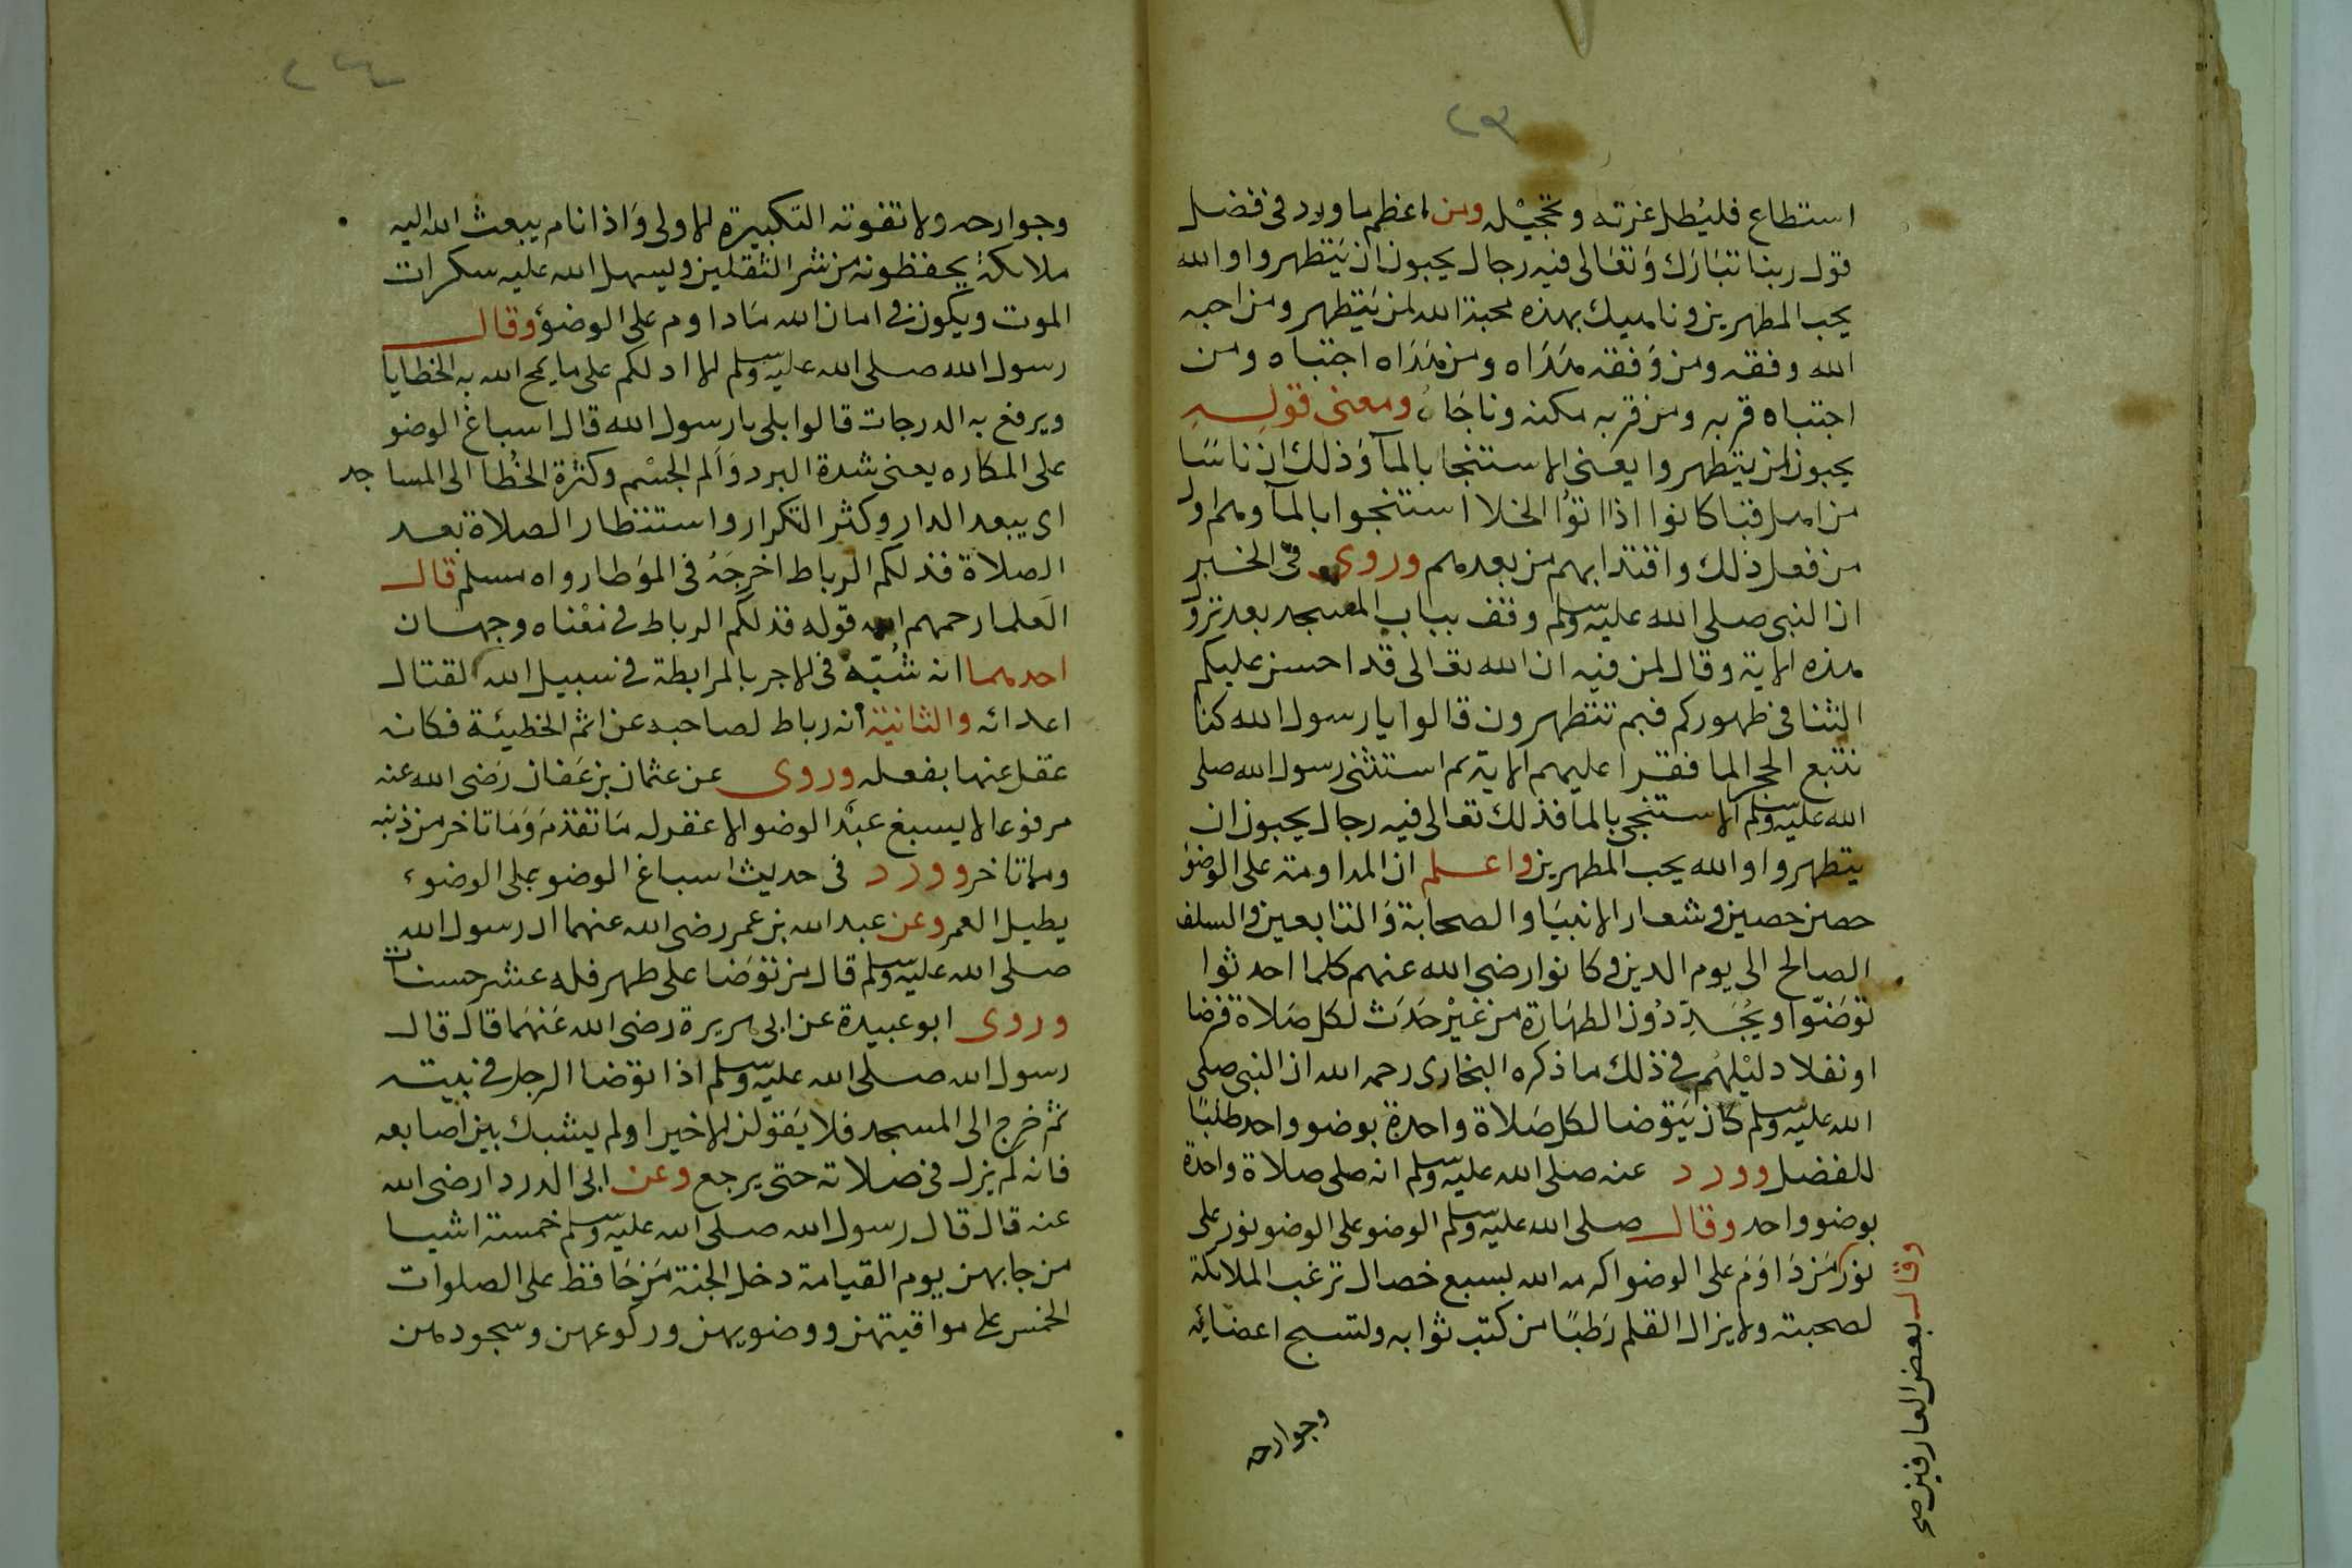 ٢٣
استطاع فليُطل غرته وتحجيْله ومن اعظم ما ورد فى فضل
قول ربنا تبَارَك وَتعَالى فيه رجال يحبون ان يَتطهروا والله
يحب المطهرين وناهيك بهذه محبة الله لمن يَتطهر ومن احبه
الله وفقه ومن وَفقه هَدَاه ومن هَدَاه اجتباه ومن
اجتباه قربه ومن قربه مكنه وناجَاه ومعنى قوله
يحبون ان يتطهروا يعَنى الاستنجا بالمآ وَذلك ان ناسًا
من اهل قبا كانوا اذا اتوُا الخلا استنجوا بالمآ وهم اول
من فعل ذلك واقتدا بهم من بعدهم وروى فى الخبر
ان النبى صلى الله عليه وسلم وقف بباب المسجد بعد نزو
هذه الاية وقال لمن فيه ان الله تعالى قد احسن عليكم
الثنا فى طهوركم فبم تتطهرون قالوا يا رسول الله كنا
نتبع الحجر الما فقرا عليهم الاية ثم استثنى رسول الله صلى
الله عليه وسلم الاستنجى بالما فذلك تعالى فيه رجال يحبون ان
يتطهروا والله يحب المطهرين واعلم ان المداومة على الوضؤ
حصن حصين وشعار الانبيَا والصحابة وَالتابعين والسلف
الصالح الى يوم الدين وكانوا رضى الله عنهم كلما احدثوا
توَضئوا ويُجَدِّدُون الطهَارة من غيْر حَدَث لكل صَلاة فرضا
او نفلا دليْلهُم فى ذلك ما ذكره البخارى رحمه الله ان النبى صلى
الله عليه وسلم كان يَتوضا لكل صَلاة واحدة بوضو واحد طلبًا
للفضل وورد عنه صلى الله عليه وسلم انه صلى صلاة واحدة
بوضو واحد وقال صلى الله عليه وسلم الوضو على الوضو نور على
نور مَن دَاوَمَ على الوضو اكرمه الله بسبع خصال ترغب الملائكة
لصحبته ولا يزال القلم رَطبًا من كتب ثوابه ولتسبح اعضائه
وجوارحه
وقال بعض العارفين صح
٢٤
وجوارحه ولا تفوته التكبيرة الاولى وَاذا نام يبعث الله اليه
ملائكة يحفظونه من شر الثقلين ويسهل الله عليه سكرات
الموت ويكون فى امان الله مَا داوم على الوضؤ وقال
رسول الله صلى الله عليه وسلم الا ادلكم على ما يمح الله به الخطايا
ويرفع به الدرجات قالوا بلى يا رسول الله قال اسباغ الوضو
على المكاره يعنى شدة البرد وَالم الجسْم وكثرة الخُطا الى المساجد
اى يبعد الدار وكثر التكرار واستنظار الصلاة بعد
الصلاة فذلكم الرباط اخرجَهُ فى الموَطا رواه مسلم قال
العَلما رحمهم الله قوله فذلكم الرباط فى مَعْناه وجهان
احدهما انه شُبّه فى الاجر بالمرابطة فى سبيل الله القتال
اعدائه والثانية أنه رباط لصاحبه عن اثم الخطيئة فكانه
عقل عنها بفعله وروى عن عثمان بن عَفان رَضى الله عنه
مرفوعا لا يسبغ عبْد الوضو الا غفر له مَا تقدّمَ وَمَا تاخر من ذنبه
وما تاخر وورد فى حديث اسباغ الوضو على الوضوء
يطيل العمر وعن عبد الله بن عمر رضى الله عنهما ان رسول الله
صلى الله عليه وسلم قال من توَضا على طهر فله عشر حسنات
وروى ابو عبيدة عن ابى هريرة رضى الله عَنهَما قال قال
رسول الله صلى الله عليه وسلم اذا توَضا الرجل فى بيته
ثم خرج الى المسجد فلا يَقولن الا خيرا ولم يشبك بين اصابعه
فانه لم يزل فى صلاته حتى يرجع وعن ابى الدردا رضى الله
عنه قال قال رسول الله صلى الله عليه وسلم خمسة اشيا
من جا بهن يوم القيامة دخل الجنة مَن حَافظ على الصلوات
الخمس على مواقيتهن ووضويهن وركوعهن وسجودهن